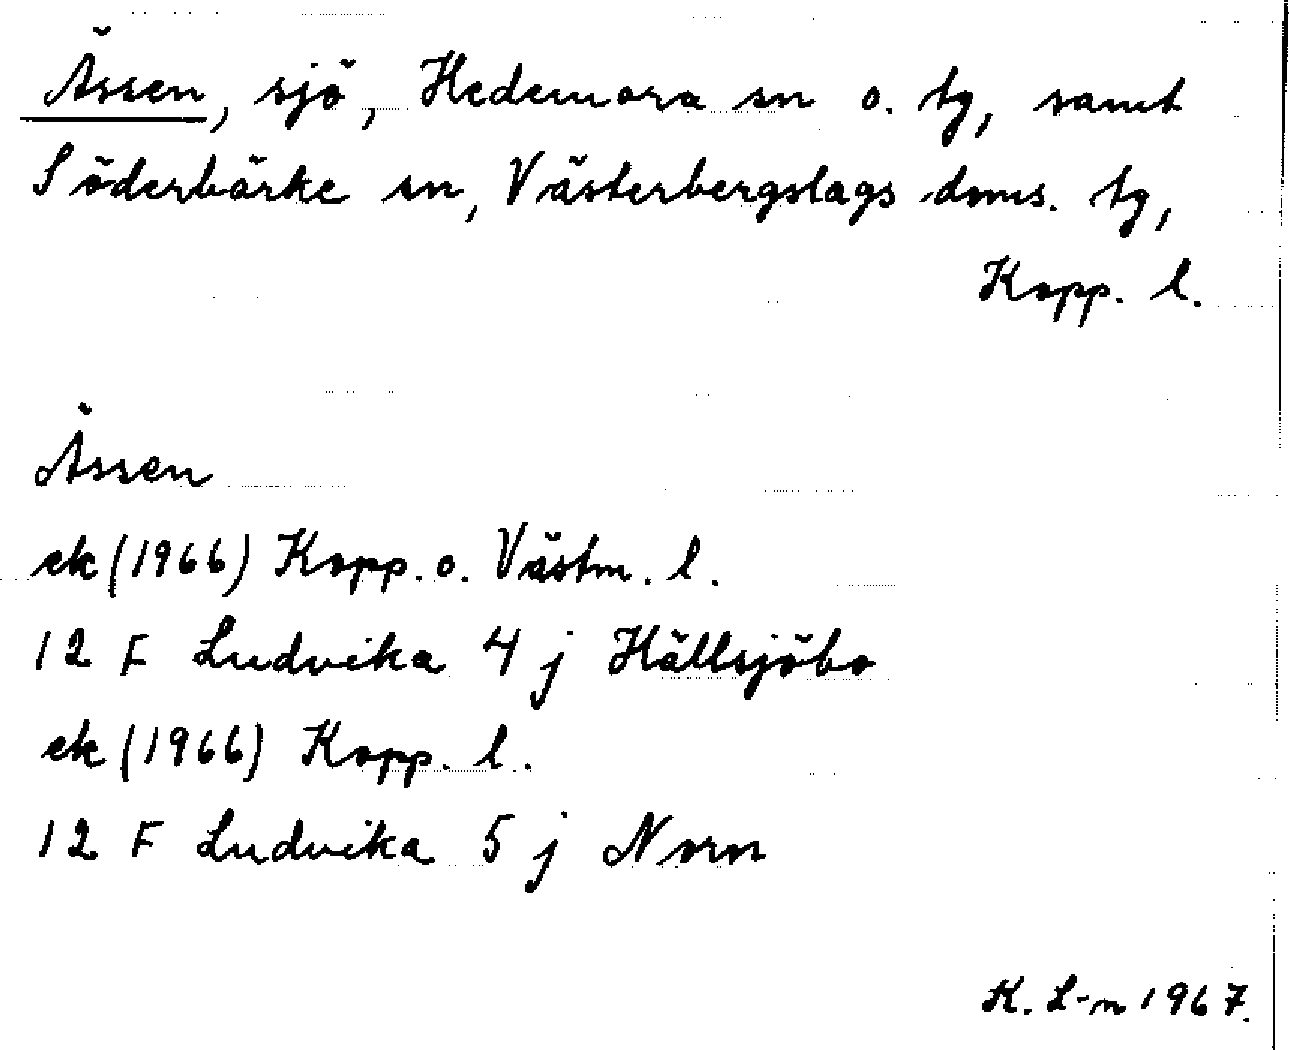 Ässen, sjö, Hedemora sn o. tg, samt
Söderbärke sn, Västerbergslags doms. tg,
Kopp. l.
Ässen
ek (1966) Kopp. o. Västm. l.
12 F Ludvika 4 j Hällsjöbo
ek (1966) Kopp. l.
12 F Ludvika 5 j Norn
K. L-n 1967.